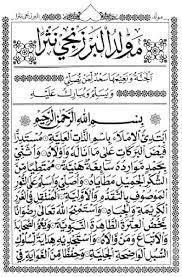 مولد
البرزنجي نثر
مولد البرزنجي نثر
الجنة ونعيمها سعد لمن يصلي
ويسلم ويبارك عليه
بسم الله الرحمن الرحيم
أبتدئ الإملاء باسم الذات العلية مستدرا
فيض البركات على ما أناله وأولاه وأثني
بحمد موارده سائغة هنية ممتطيا من
الشكر الجميل مطاياه وأصلي وأسلم على النور
الموصوف بالتقدم والأولية المنتقل في الغرر
الكريمة والجباه وأستمنح الله تعالى رضوانا
يخص العترة الطاهرة النبوية ويعم الصحابة
والأتباع ومن والاه وأستجديه هداية لسلوك
السبل الواضحة الجلية وحفظا من الغواية في